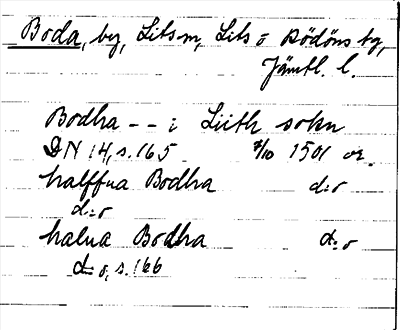 Boda, by, Lits sn, Lits o Rödöns tg,
Jämtl. l.
Bodha -- i Liith sokn
DN 14, s. 165 7/10 1501 or.
halffua Bodha d:o
d:o
halua Bodha d:o
d:o, s. 166